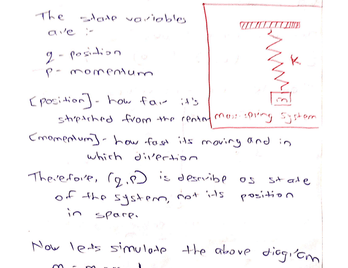 The state variables
are :-
q - position
p - momentum
K
m
mass spring system
[position] - how far it's
stretched from the center
[momentum] - how fast its moving and in
which direction
Therefore, (q,p) is describe as state
of the system, not its position
in space.
Now lets simulate the above diagram